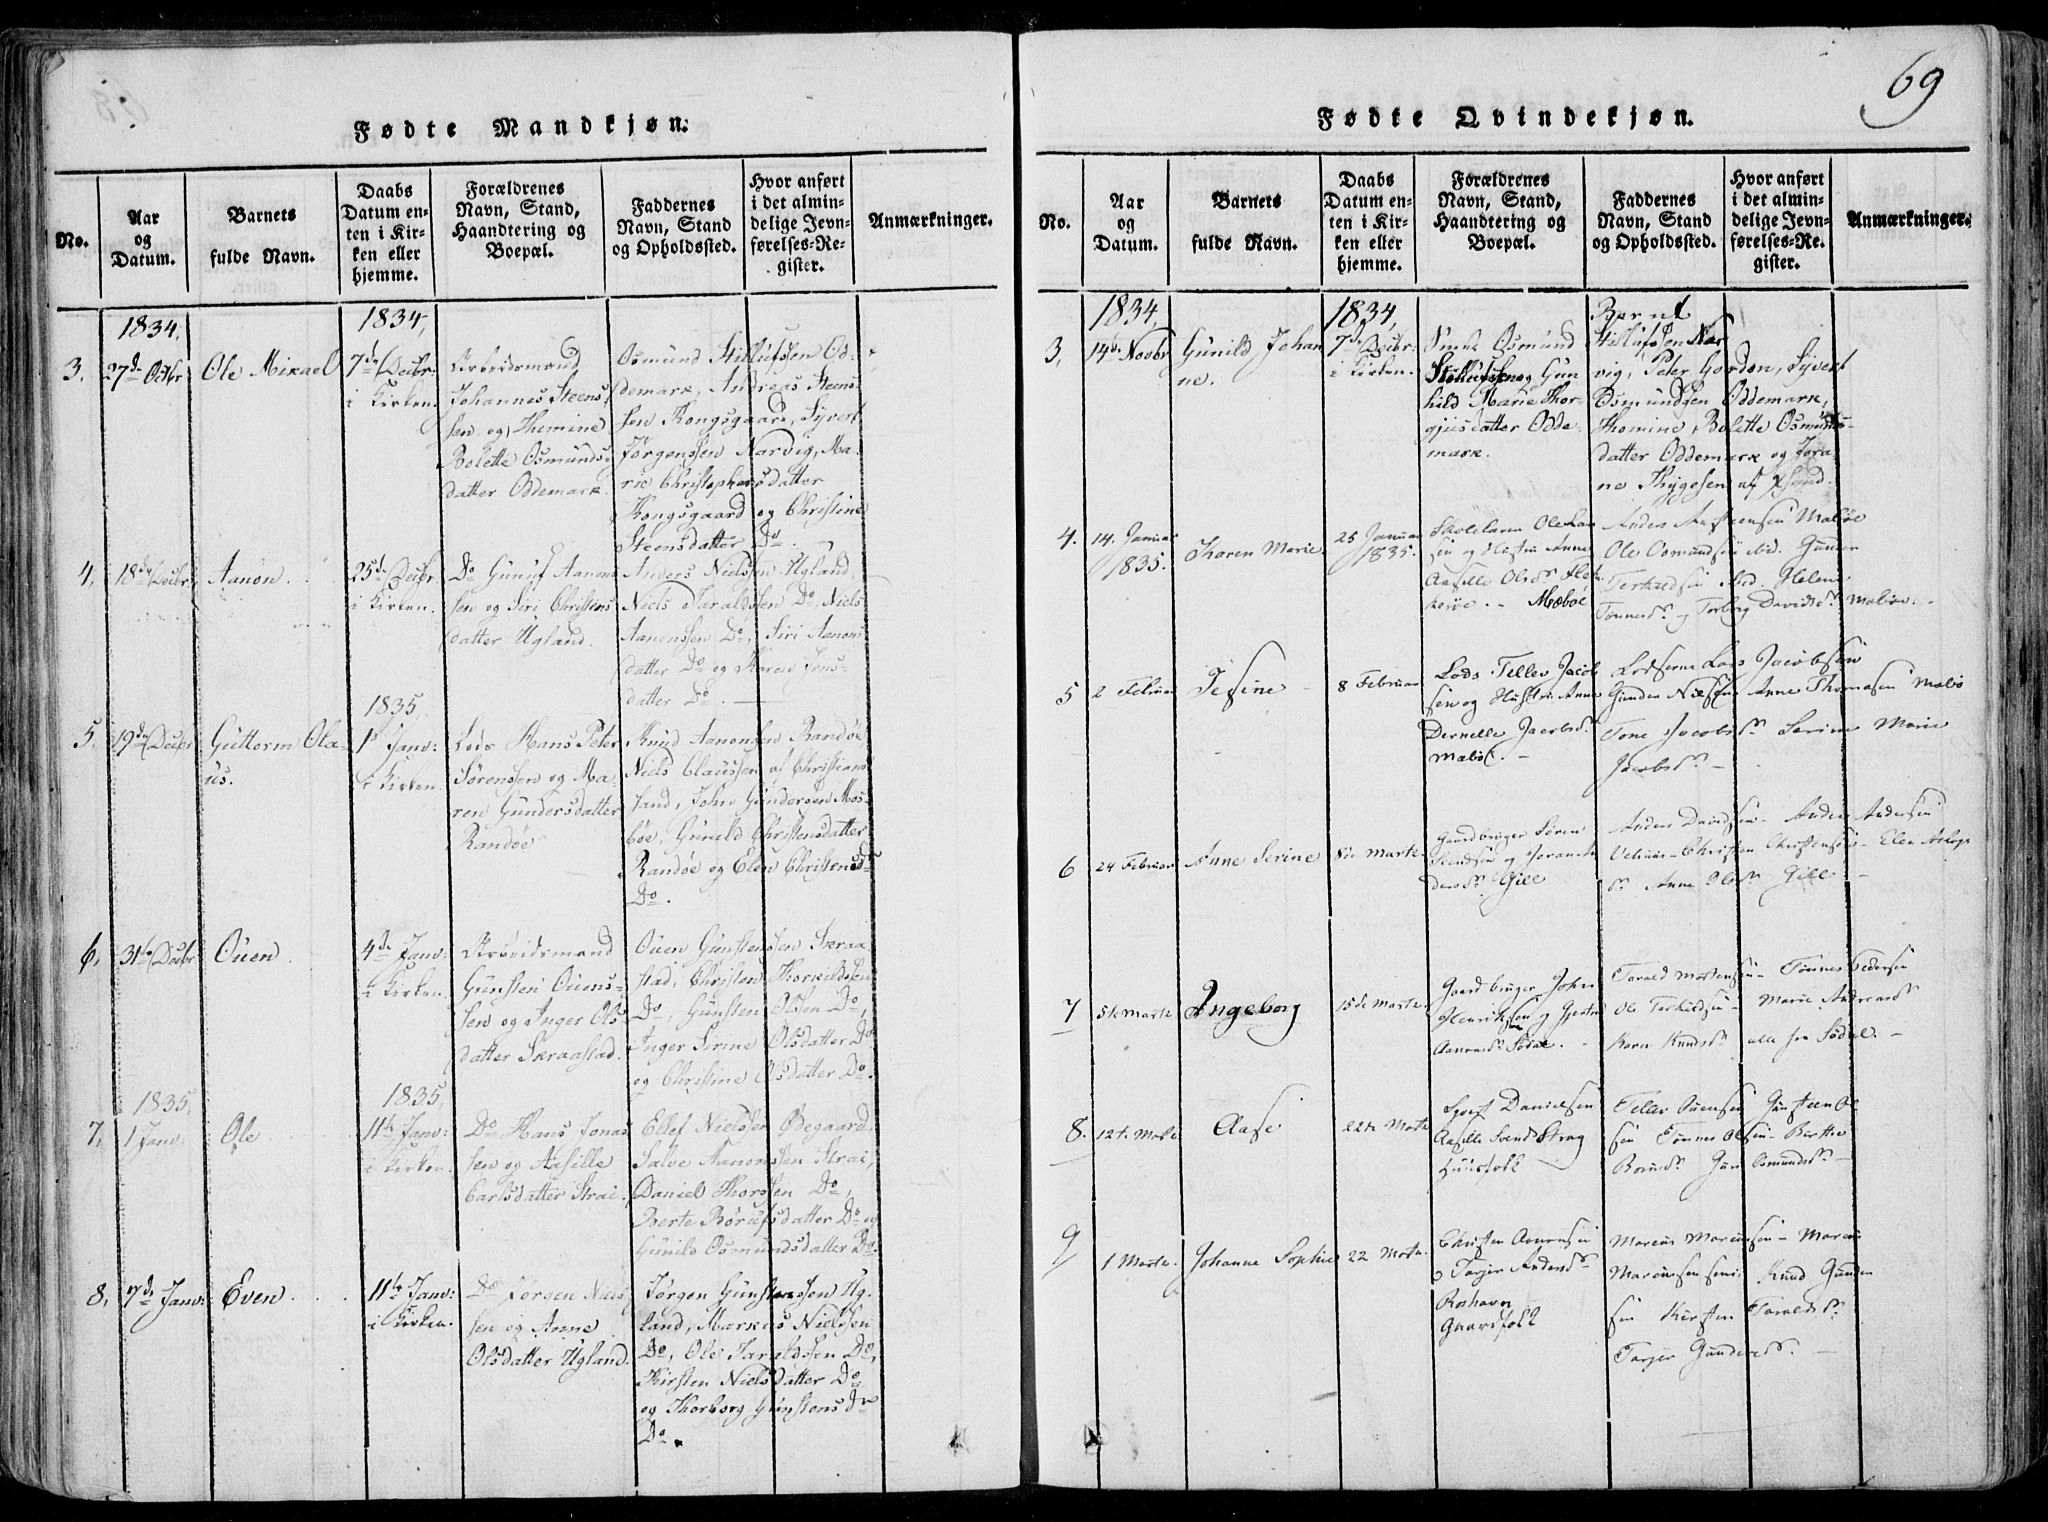 69
Fødte Mandkjøn.
No.
Aar
og
Datum.
Barnets
fulde Navn.
Daabs
Datum en-
ten i Kir-
ken eller
hjemme.
Forældrenes
Navn, Stand,
Haandtering og
Boepæl.
Faddernes
Navn, Stand
og Opholdssted.
Hvor anført
i det almin-
delige Jevn-
førelses-Re-
gister.
Anmærkninger.
1834.
3.
27de Octbr
Ole Mikael
1834,
7de Decbr:
i Kirken.
Arbeidsmand
Johannes Steens-
sen og Themine
Bolette Osmunds-
datter Oddemark.
Osmund Stillufssen Od-
demark, Andreas Steens-
sen Kongsgaard, Syvert
Jørgenssen Narvig, Ma-
rie Christophersdatter
Kongsgaard og Christine
Steensdatter Do.
4,
18de Decbr
Aanon.
25de Decbr.
i Kirken.
Do Gunuf Aanons-
sen og Siri Christens
datter Ugland.
Anders Nielssen Ugland,
Niels Taraldssen Do, Niels
Aanonssen Do, Siri Aanons
datter Do og Karen Jens-
datter Do.
5.
19de Decbr
Guttorm Ola-
us.
1835
1te Janv:
i Kirken.
Lods Hans Peter
Sørenssen og Ma-
ren Gundersdatter
Randøe
Knud Aanonsen Randøe
Niels Claussen af Christians
sand, John Gundersen Mos-
bøe, Gunild Christensdatter
Randøe og Elen Christensdr
Do.
6,
31te Decbr
Ouen
4de Janv:
i Kirken.
Arbeidsmand
Gunsten Ouens-
sen og Inger Ols-
datter Skraastad.
Ouen Gunstenssen Skraa
stad, Christen Thorkildsen
Do, Gunsten Olssen Do,
Inger Serine Olsdatter Do
og Christine Olsdatter Do.
1835,
7,
1 Janv:
Ole
1835,
11te Janv:
i Kirken.
Do Hans Jonas-
sen og Aasille
Carlsdatter Strai.
Ellef Nielssen Øegaard,
Salve Aanonssen Strai,
Daniel Thorssen Do,
Berte Børufsdatter Do og
Gunild Osmundsdatter Do.
8,
7de Janv:
Even
11te Janv:
i Kirken.
Do Jørgen Niels-
sen og Anne
Olsdatter Ugland.
Jørgen Gunstenssen Ug-
land, Markus Nielssen
Do, Ole Taraldssen Do,
Kirsten Nielsdatter Do
og Thorborg Gunstensdr
Do.
Fødte Qvindekjøn.
No.
Aar
og
Datum.
Barnets
fulde Navn.
Daabs
Datum en-
ten i Kir-
ken eller
hjemme.
Forældrenes
Navn, Stand,
Haandtering og
Boepæl.
Faddernes
Navn, Stand
og Opholdssted.
Hvor anført
i det almin-
delige Jevn-
førelses-Re-
gister.
Anmærkninger.
1834,
3,
14de Novbr
Gunild Johan
ne.
1834,
7de Decbr.
i Kirken.
Osmund
Stillufssen og Gun
hild Marie Thor-
gjusdatter Odde-
mark.
Bernt
Stillufssen Nar
vig, Peter Gordon, Syvert
Osmundsen Oddemark,
Thomine Bolette Osmunds-
datter Oddemark og Jora-
ne Thygesen af Xsand.
4.
14. Januar
1835.
Karen Marie
25 Januar
1835.
Skolelærer Ole Lar
sen og Hustru Anne
Aasille Olsdr Flek-
kerøe. - Mæbøe
Anders Anstensen Mabøe
Ole Osmundsen ibid. Gunder
Terkildsen ibd. Helene
Tønnesdr og Torborg Davidsdr Mabøe.
5
2 Februar
Jesine
8 Februar
Lods Tellev Jacob
sen og Hustru Anne
Pernelle Jacobsdr
Mabø.
Lodserne Lars Jacobsen
Gunder Nielsen Anne Thomasen Mabø
Tone Jacobsdr Serine Marie
Jacobsdr
6
24 Februar
Anne Serine
8de Marts.
Gaardbruger Søren
Svendsen og Joran An
dersdr Gill
Anders Davidsen - Anders Andersen
- Christen Christensen - Elen Aslags
dr Anne Olsdr Gill.
7
5te Marts
Ingeborg
15de Marts.
Gaardbruger John
Henriksen og
Aanensdr Sødal.
Tarald Mortensen - Tønnes Pedersen
Ole Terkildsen - Marie Andreasdr
Karen Knudsdr alle fra Sødal.
8.
12te Marts
Aase
22de Marts
Sjvert Danielsen
Aasille Svendsdr Strag
Huusfolk
Tellev Ouensen Gunsteen Ol
sen Tønnes Olsen - Berthe
Osmundsdr
9
1 Marts.
Johanne Sophie
22 Marts.
Christen Aanensen
o Tarjer Andersdr
Roshavn
Gaardfolk
Marcus Marcussen - Marcus
Marcussen seni: Knud Gunder
sen Kirsten Taraldsdr
Tarjer Gundersdr